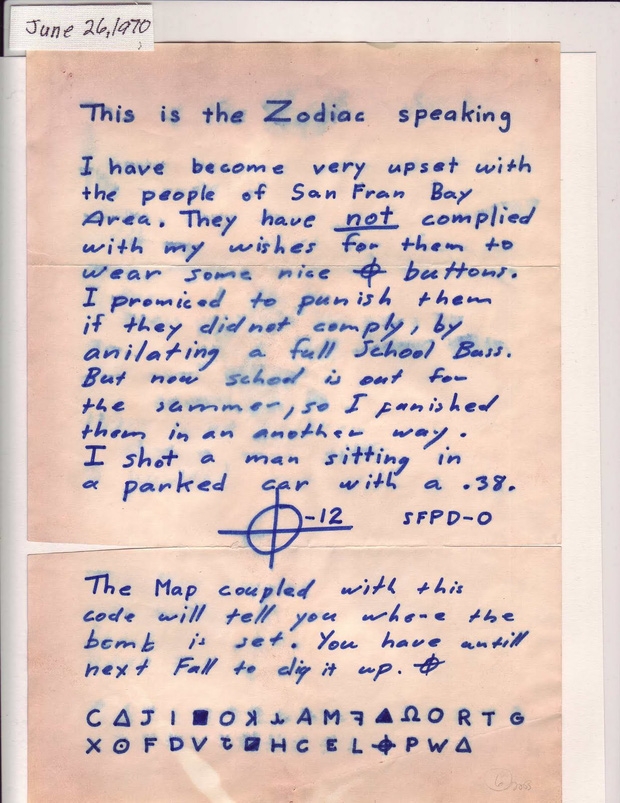 June 26, 1970
This is the Zodiac speaking
I have become very upset with
the people of San Fran Bay
Area. They have not complied
with my wishes for them to
wear some nice ⌖ buttons.
I promiced to punish them
if they did not comply, by
anilating a full School Buss.
But now school is out for
the summer, so I punished
them in an another way.
I shot a man sitting in
a parked car with a .38.
⌖-12 SFPD-0
The Map coupled with this
code will tell you where the
bomb is set. You have untill
next Fall to dig it up. ⌖
C Δ J I ■ O ꓘ ⅄ A M ꟻ ▲ Ω O R T G
X ⊙ F D V Ꞇ ◪ H C E L ⌖ P W Δ